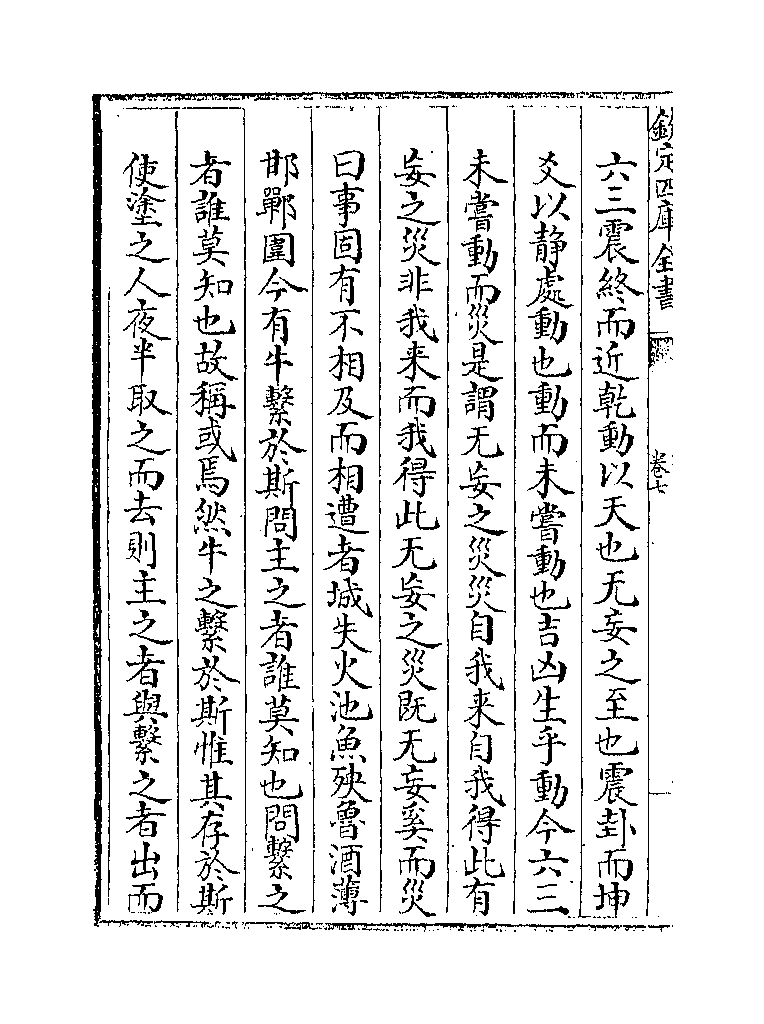 欽定四庫全書
卷七
六三震終而近乾動以天也无妄之至也震卦而坤
爻以静處動也動而未嘗動也吉凶生乎動今六三
未嘗動而災是謂无妄之災災自我来自我得此有
妄之災非我来而我得此无妄之災既无妄奚而災
曰事固有不相及而相遭者城失火池魚殃魯酒薄
邯鄲圍今有牛繫於斯問主之者誰莫知也問繫之
者誰莫知也故稱或焉然牛之繫於斯惟其存於斯
使塗之人夜半取之而去則主之者與繫之者出而